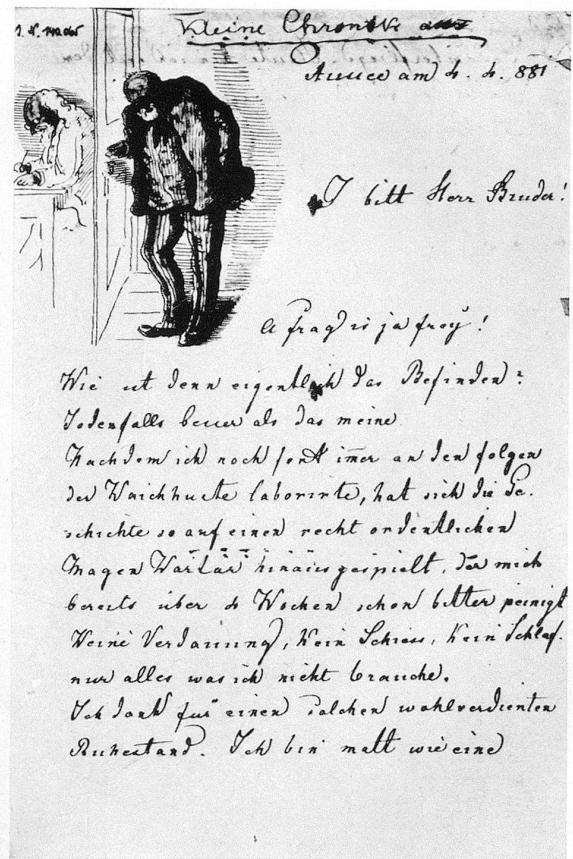 Kleine Chronik aus
Aussee am 4. 4. 881
I bitt Herr Bruder!
A frag is ja frey!
Wie ist denn eigentlich das Befinden?
Jedenfalls besser als das meine
Nachdem ich noch fort imer an den folgen
der laborirte, hat sich die Ge.
schichte so auf einen recht ordentlichen
Magen hinaus gespielt, der mich
bereits über 4 Wochen schon bitter peinigt
Keine Verdauung, Kein Schiess, Kein Schlaf.
nur alles was ich nicht brauche.
Ich dank für einen solchen wohlverdienten
Ruhestand. Ich bin matt wie eine